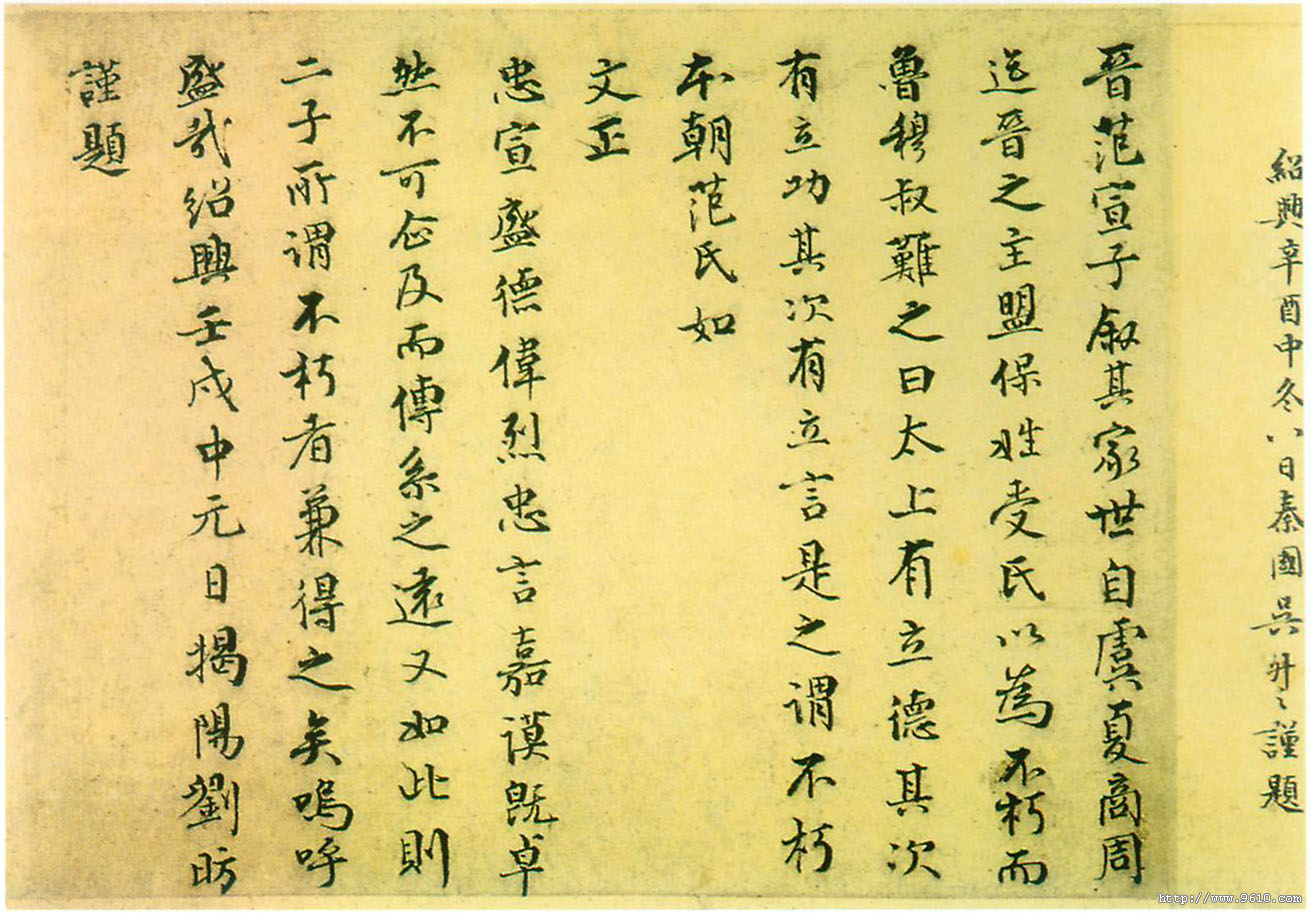 紹興辛酉中冬八日秦國吳升〻謹題
晉范宣子叙其家世自虞夏商周
迄晉之主盟保姓受氏以為不朽而
魯穆叔難之曰太上有立德其次
有立功其次有立言是之謂不朽
本朝范氏如
文正
忠宣盛德偉烈忠言嘉謨既卓
然不可企及而傳系之遠又如此則
二子所謂不朽者兼得之矣嗚呼
盛哉紹興壬戌中元日揭陽劉昉
謹題
http://www.9610.com